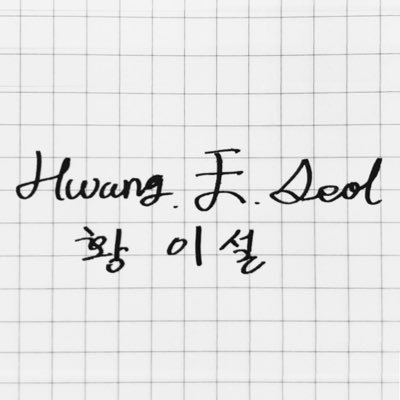 Hwang. E. Seol
황 이 설